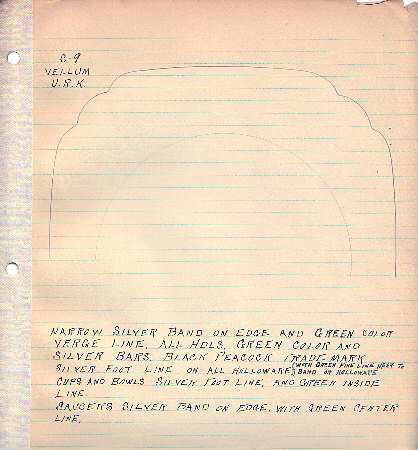 C-9
VELLUM
U.R.K.
NARROW SILVER BAND ON EDGE AND GREEN COLOR
VERGE LINE. ALL HDLS. GREEN COLOR AND
SILVER BARS. BLACK PEACOCK TRADE MARK
SILVER FOOT LINE ON ALL HOLLOWARE (WITH GREEN FINE LINE NEXT TO BAND ON HOLLOWARE
CUPS AND BOWLS SILVER FOOT LINE, AND GREEN INSIDE
LINE.
SAUCERS SILVER BAND ON EDGE, WITH GREEN CENTER
LINE.